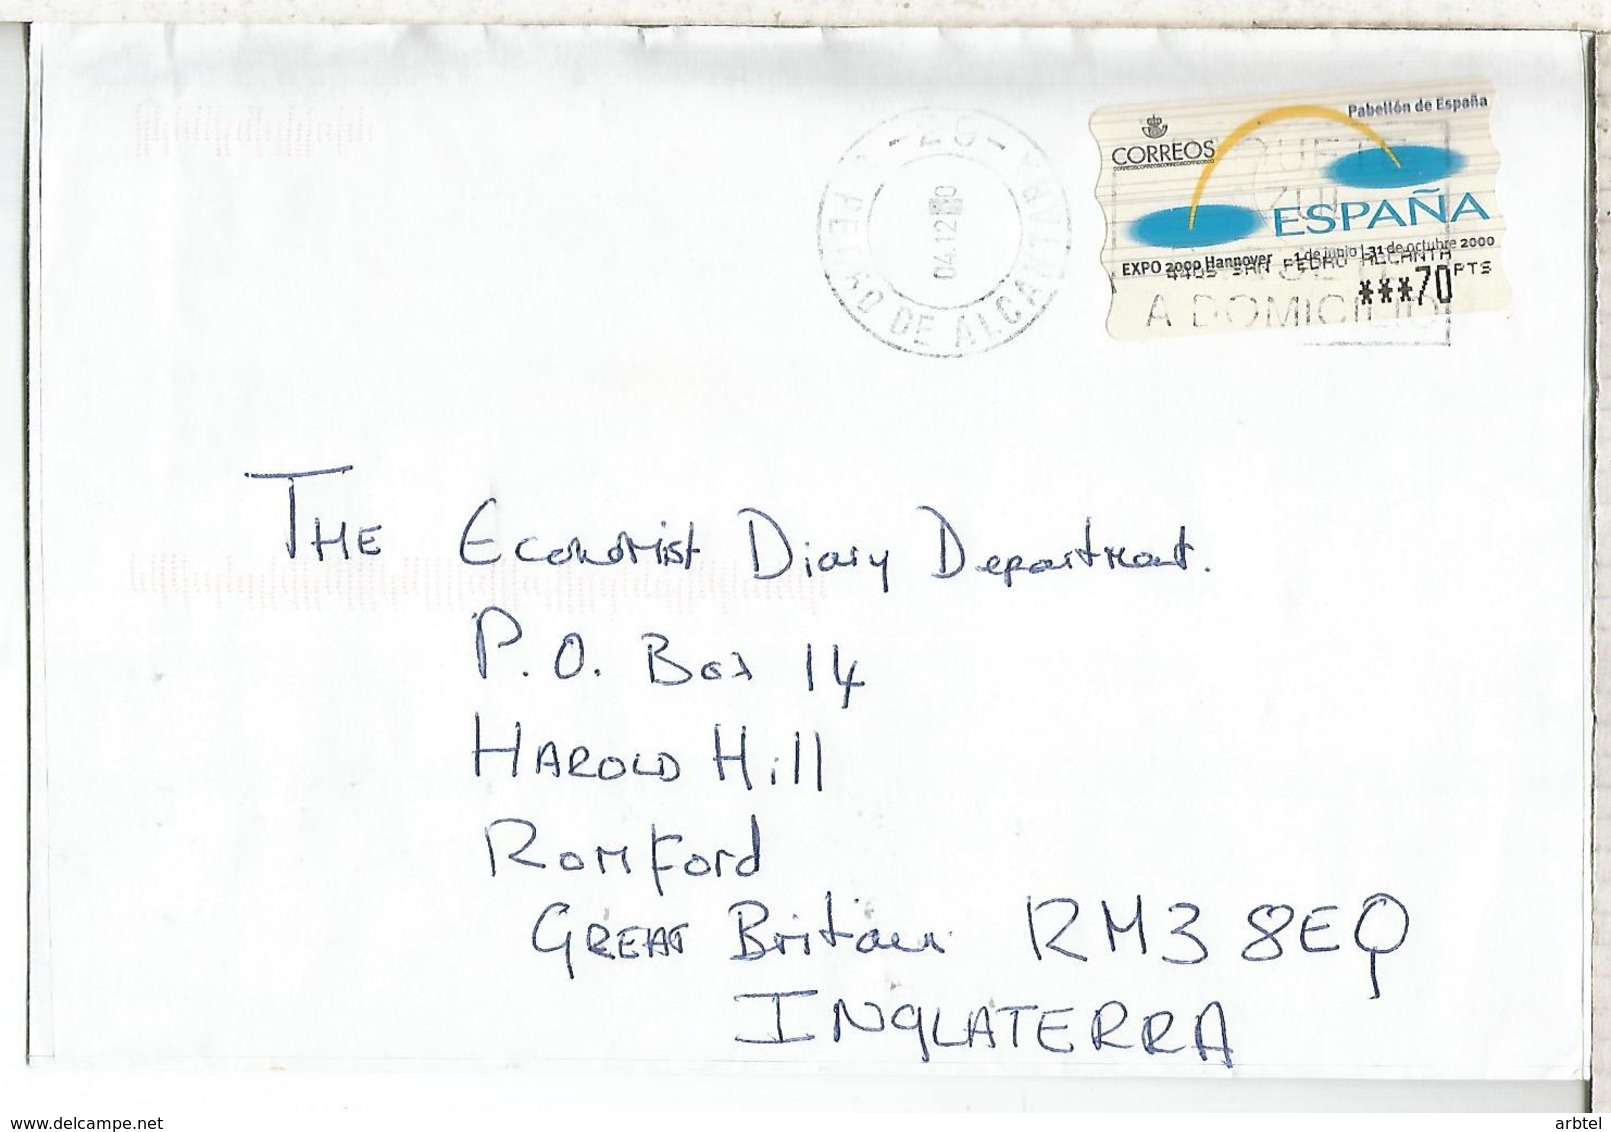 Pabellón de España
CORREOS
ESPAÑA
EXPO 2000 Hannover 1 de junio | 31 de octubre 2000
4409 SAN PEDRO ALCANTA
PTS
***70
A DOMICILIO
-29-
04.12
PEDRO DE ALCANTARA
THE Economist Diary Department.
P.O. Box 14
HAROLD Hill
Romford
GREAT Britain RM3 8EQ
INGLATERRA
arbtel